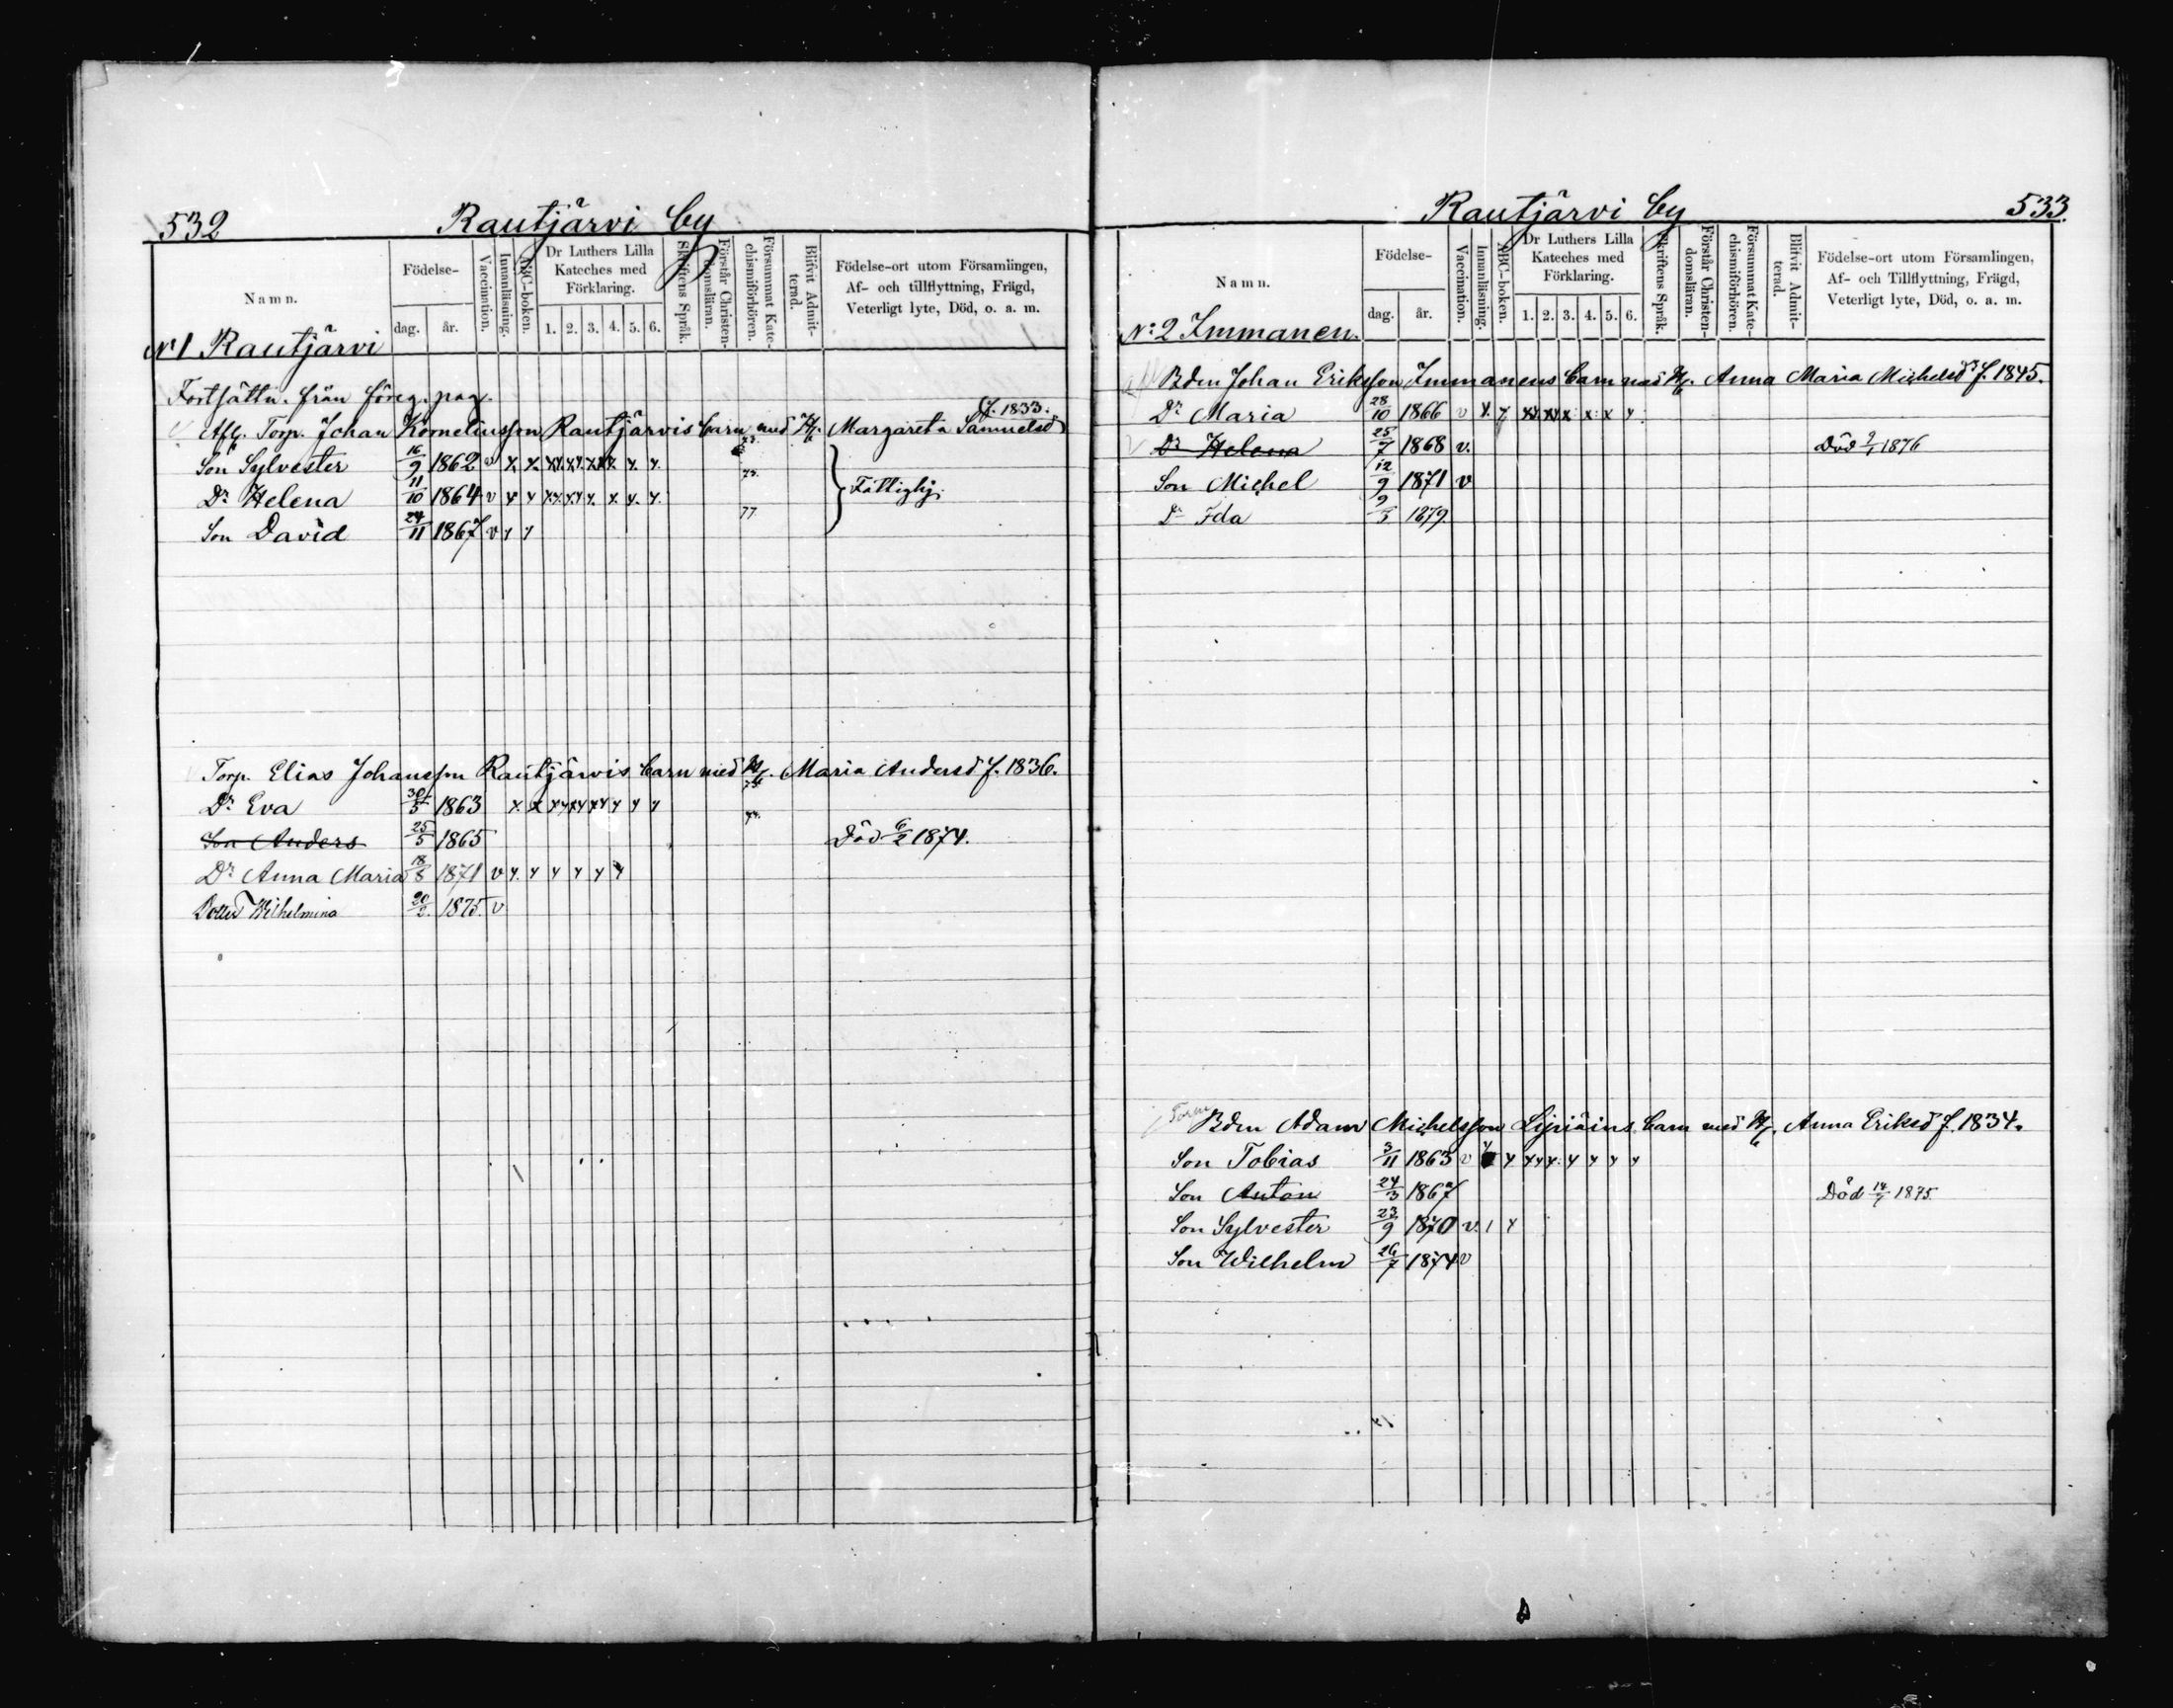 532
Rautjärvi by
Namn.
Födelse-
dag.
år.
Vaccination.
Innanläsning.
ABC-boken.
Dr Luthers Lilla Kateches med Förklaring.
1. 2. 3. 4. 5. 6.
Skriftens Språk.
Förstår Christendomsläran.
Försummat Katechismiförhören.
Blifvit Admitterad.
Födelse-ort utom Församlingen,
Af- och tillflyttning, Frägd,
Veterligt lyte, Död, o. a. m.
N1 Rautjärvi
Fortsättn. från föreg. pag.
f. 1833.
Afl. Torp. Johan Korneliusson Rautjärvis barn med H. Margareta Samuelsd
Son Sylvester 16/9 1862 v x x x x x x x x x
Dr Helena 11/10 1864 v x x x x x x x x x 73. Fattighj.
Son David 24/11 1867 v x x 77
Torp. Elias Johansson Rautjärvis barn med H. Maria Andersd f. 1836.
Dr Eva 30/5 1863 x x x x x x x x x
Son Anders 25/5 1865 Död 6/2 1874.
Dr Anna Maria 18/8 1871 v x x x x x x
Dotter Wilhelmina 20/2. 1875. v
Rautjärvi by
533.
Namn.
Födelse-
dag.
år.
Vaccination.
Innanläsning.
ABC-boken.
Dr Luthers Lilla Kateches med Förklaring.
1. 2. 3. 4. 5. 6.
Skriftens Språk.
Förstår Christendomsläran.
Försummat Katechismiförhören.
Blifvit Admitterad.
Födelse-ort utom Församlingen,
Af- och Tillflyttning, Frägd,
Veterligt lyte, Död, o. a. m.
No 2 Immanen.
Bden Johan Eriksson Immanens barn med H. Anna Maria Michelsd f. 1845.
Dr Maria 28/10 1866 v x x x x x x x x
Dr Helena 25/7 1868 v. Död 9/1 1876
Son Michel 12/9 1871 v
Dr Ida 9/3 1879.
Bden Adam Michelsson Lipiäins barn med H. Anna Eriksd f. 1834.
Son Tobias 3/11 1863 v x x x x x x x x
Son Anton 24/3 1867 Död 14/1 1875.
Son Sylvester 23/9 1870 v. / x
Son Wilhelm 26/7 1874 v